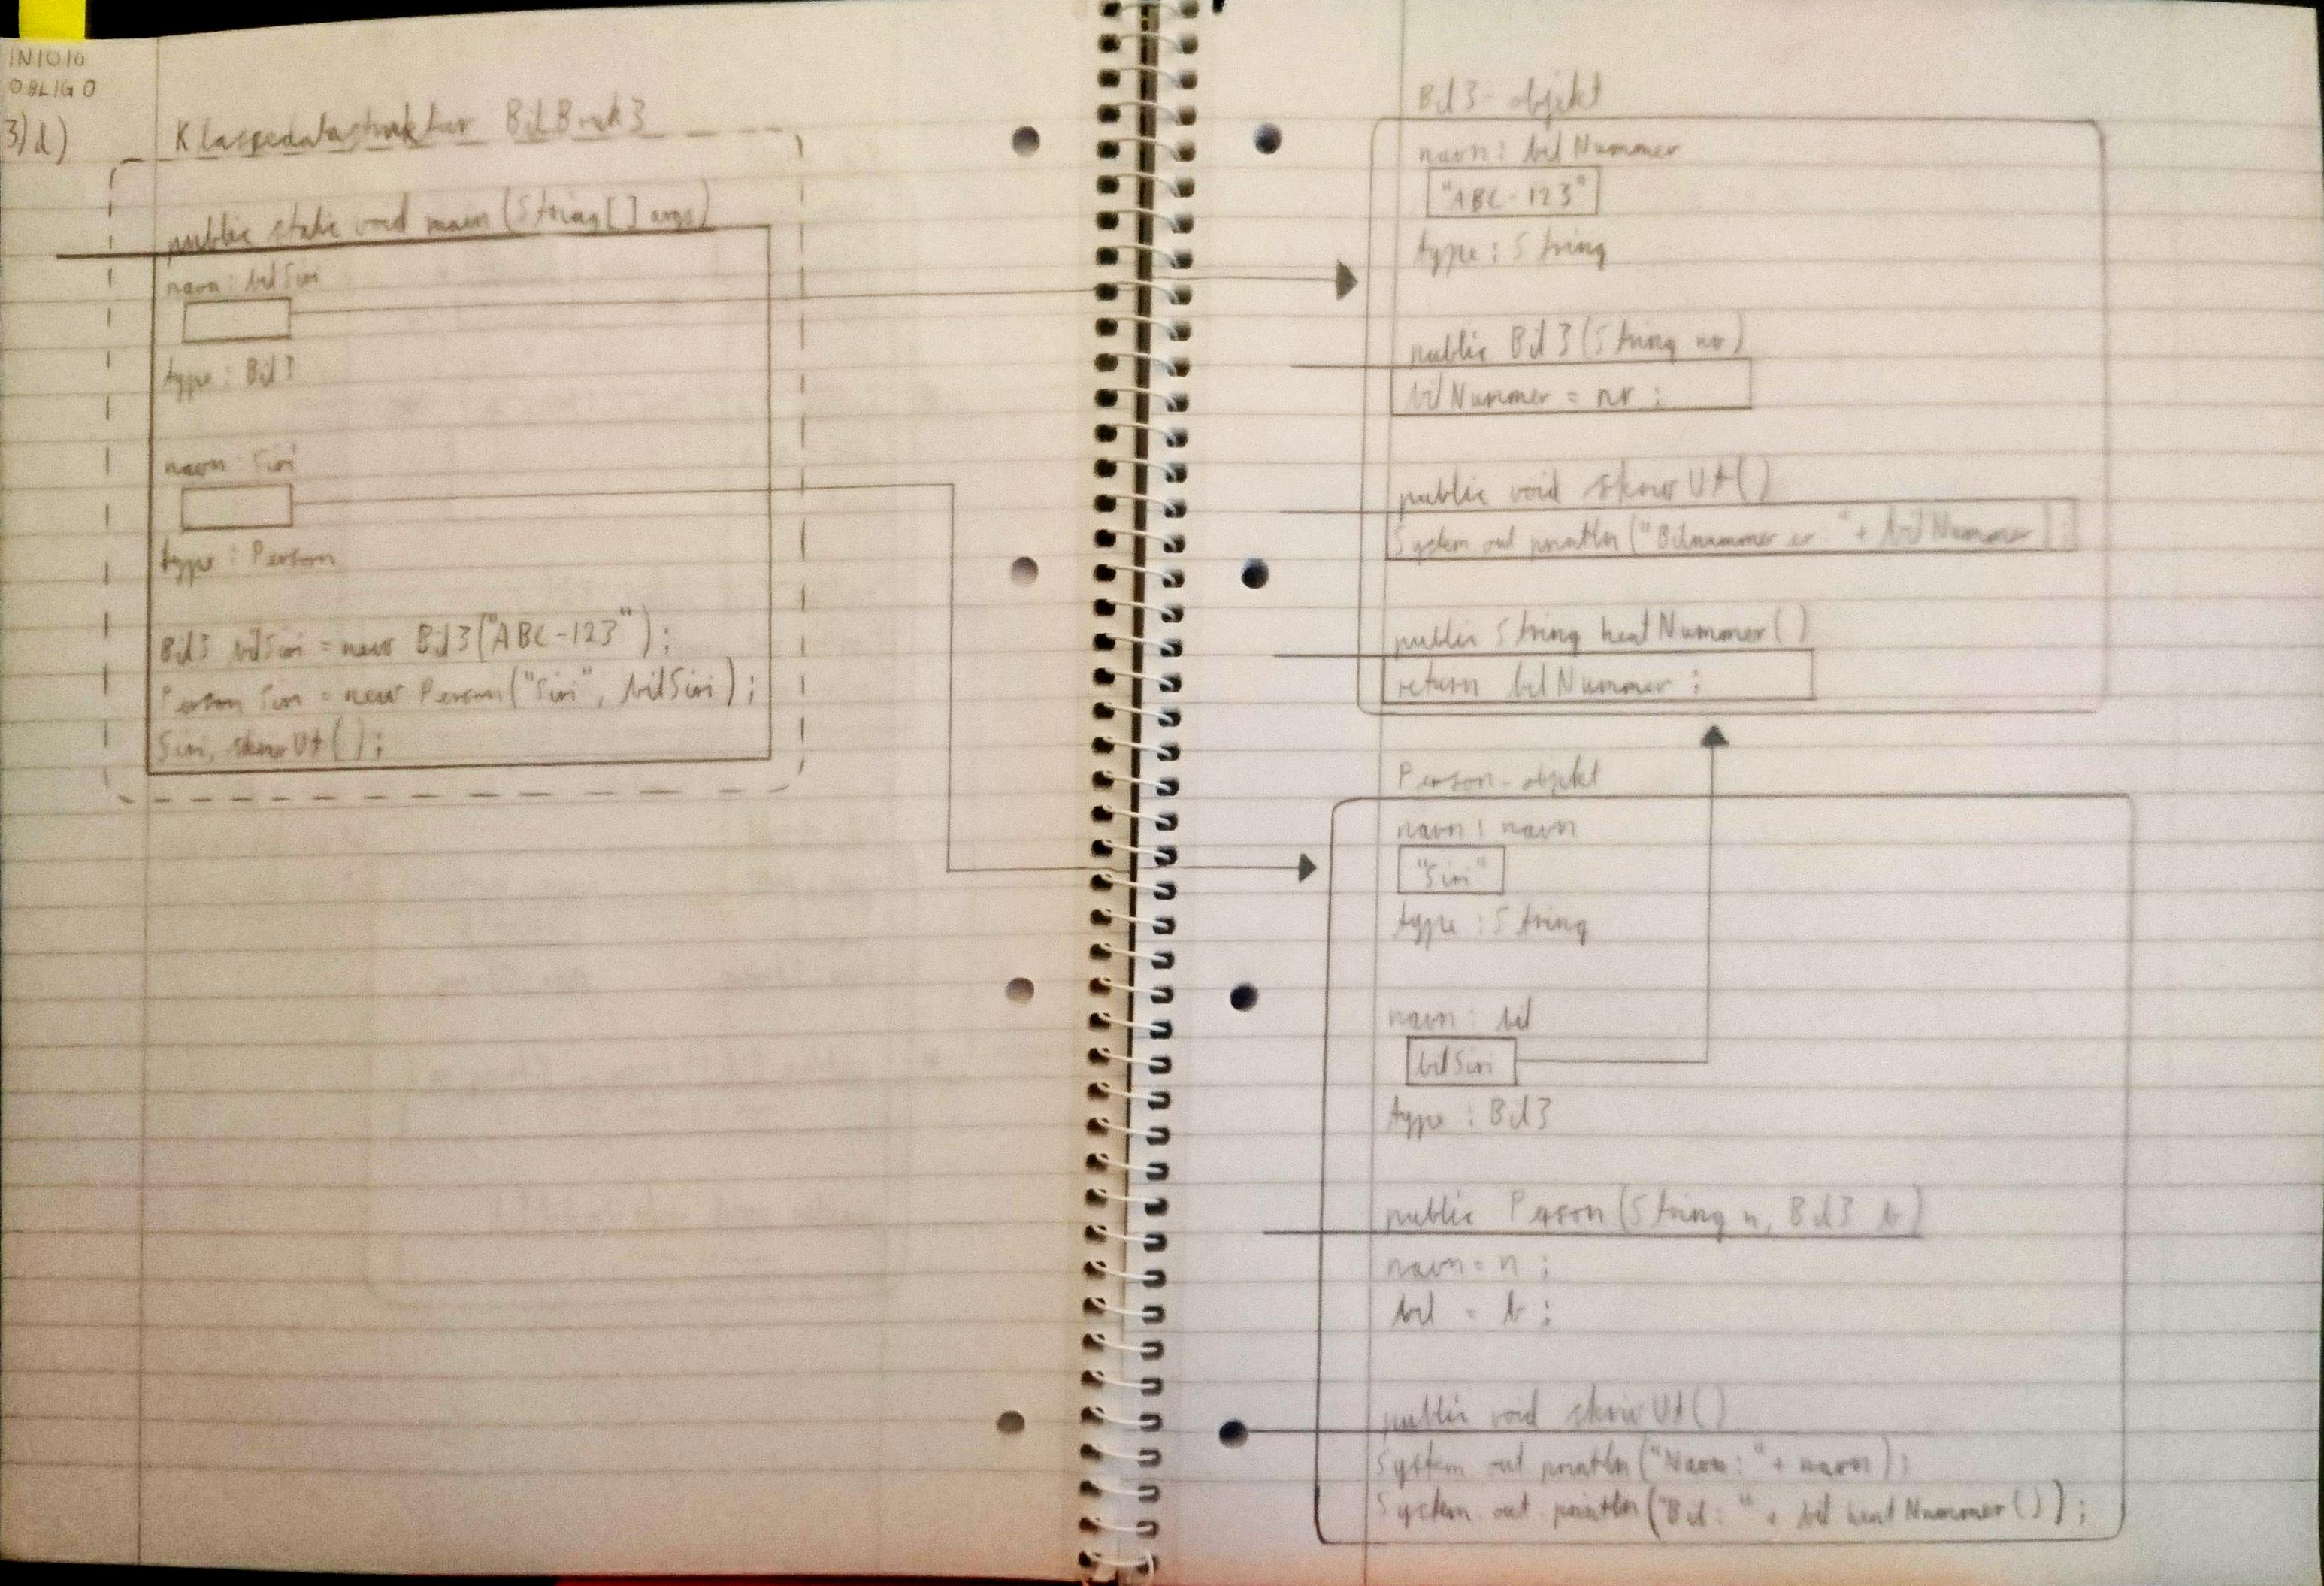 IN1010
OBLIG 0
3)d)
Klassedatastruktur BilBruk3
public static void main(String[] args)
navn: bilSiri
type: Bil3
navn: Siri
type: Person
Bil3 bilSiri = new Bil3("ABC-123");
Person Siri = new Person("Siri", bilSiri);
Siri.skrivUt();
Bil3-objekt
navn: bilNummer
"ABC-123"
type: String
public Bil3(String nr)
bilNummer = nr;
public void skrivUt()
System.out.println("Bilnummer er: " + bilNummer);
public String hentNummer()
return bilNummer;
Person-objekt
navn: navn
"Siri"
type: String
navn: bil
bilSiri
type: Bil3
public Person(String n, Bil3 b)
navn = n;
bil = b;
public void skrivUt()
System.out.println("Navn: " + navn);
System.out.println("Bil: " + bil.hentNummer());